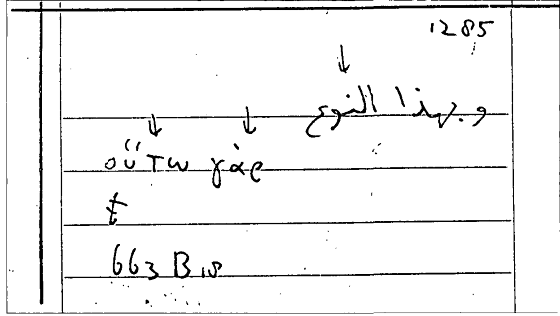 1285
↓
وبهذا النوع
↓ ↓
οὕτω γὰρ
t
663 B 18